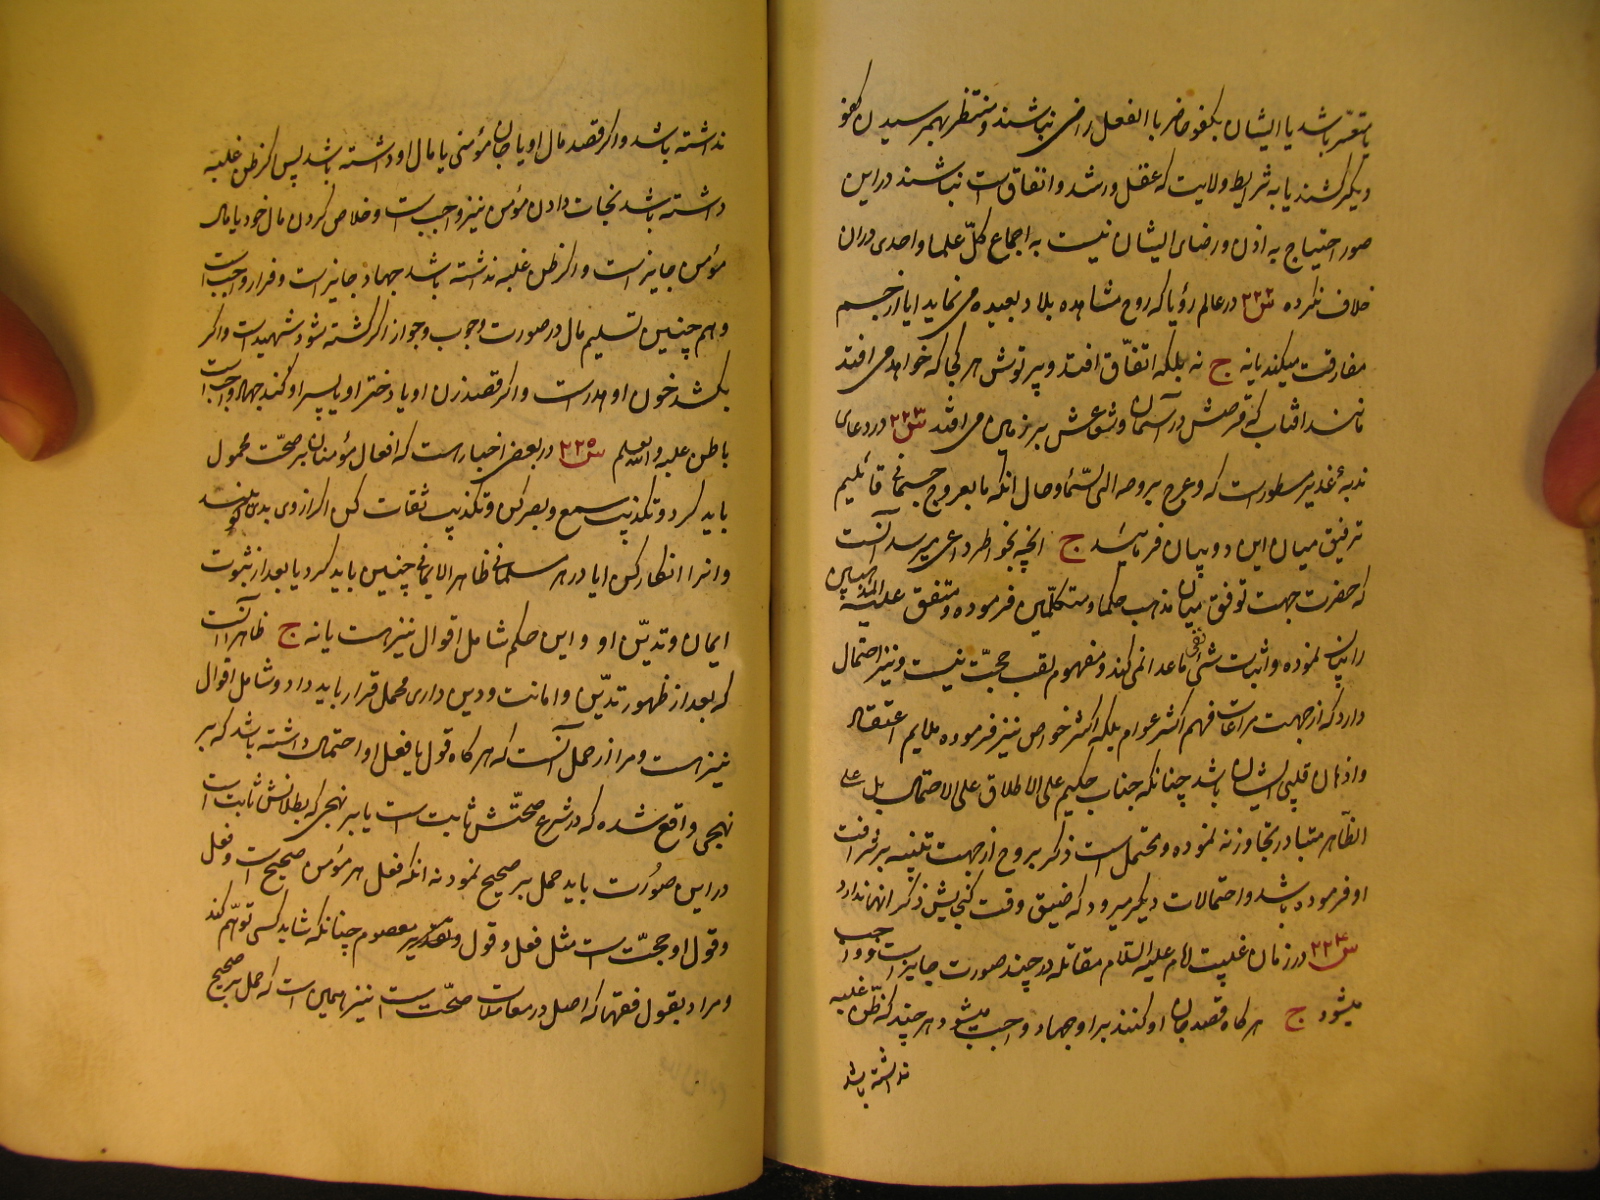 یا متعسّر باشد یا ایشان بکفو حاضر بالفعل راضی نباشند و منتظر بهمرسیدن کفو
دیکر کشند یا به شرایط ولایت که عقل و رشد و اتفاق است نباشند در این
صور احتیاج به اذن و رضای ایشان نیست به اجماع کلّ علما و احدی در ان
خلاف نکرده س ۲۲۲ در عالم رؤیا که روح مشاهده بلاد بعیده می نماید ایا از جسم
مفارقت میکند یا نه ج نه بلکه اتفّاق افتد و پرتوش هر کجا که خواهد می افتد
مانند افتاب که قرصش در آسمان و شعاعش بر زمین می افتد س ۲۲۳ در دعای
ندبهٔ غدیر مسطور است که و عرج بروحه الی السّماء و حال انکه ما بعروج جسمانی قائلیم
توفیق میان این دو بیان فرمائید ج انچه بخواطر داعی میرسد آنست
که حضرت جهت توفق میان مذهب حکما و متکلّمین فرموده و متفق علیه المذهبین
را بیان نموده و اثبات شی نفی ماعدا نمی کند و مفهوم لقب حجّت نیست و نیز احتمال
دارد که از جهت مراعات فهم اکثر عوام بلکه اکثر خواص نیز فرموده ملایم اعتقاد
و اذهان قلبی ایشان باشد چنانکه جناب حکیم علی الاطلاق علی الاحتمال بل علی
الظاهر متبادر تجاوز نه نموده و محتمل است ذکر بروح از جهت تنبیه بر شرافت
او فرموده باشد و احتمالات دیکر میرود که ضیق وقت کنجایش ذکر انها ندارد
س ۲۲۴ در زمان غیبت امام علیه السلام مقاتله در چند صورت جایز است و واجب
میشود ج هر کاه قصد جان او کنند بر او جهاد واجب میشود هر چند که ظّن غلبه
نداشته باشد
نداشته باشد و اکر قصد مال او یا جان مؤمنی یا مال او داشته باشد پس اکر ظن غلبه
داشته باشد نجات دادن مؤمن نیز واجب است و خلاص کردن مال خود یا مال
مؤمن جایز است و اکر ظن غلبه نداشته باشد جهاد جایز است و فرار واجب است
و هم چنین تسلیم مال در صورت وجوب و جواز اکر کشته شود شهید است و اکر
بکشد خون او هدر است و اکر قصد زن او یا دختر او یا پسر او کند جهاد واجب است
با ظن غلبه و الله یعلم س ۲۲۵ در بعض اخبار است که افعال مؤمنان بر صحّت محمول
باید کرد و تکذیب سمع و بصر کن و تکذیب ثقات کن اکر از وی بدی کویند
و انرا انکار کن ایا در هر مسلمانی ظاهر الایمانی چنین باید کرد یا بعد از ثبوت
ایمان و تدیّن او و این حکم شامل اقوال نیز هست یا نه ج ظاهر آنست
که بعد از ظهور تدیّن و امانت و دین داری محمل قرار باید داد و شامل اقوال
نیز هست و مراد از حمل آنست که هر کاه قول یا فعل او احتمال داشته باشد که بر
نهجی واقع شده که در شرع صحّتش ثابت است یا بر نهجی که بطلانش ثابت است
در این صورت باید حمل بر صحیح نمود نه انکه فعل هر مؤمن صحیح است و فعل
و قول او حجّت است مثل فعل و قول و تقریر معصوم چنانکه شاید کسی توهّم کند
و مراد بقول فقها که اصل در معاملات صحّت است نیز همین است که حمل بر صحیح